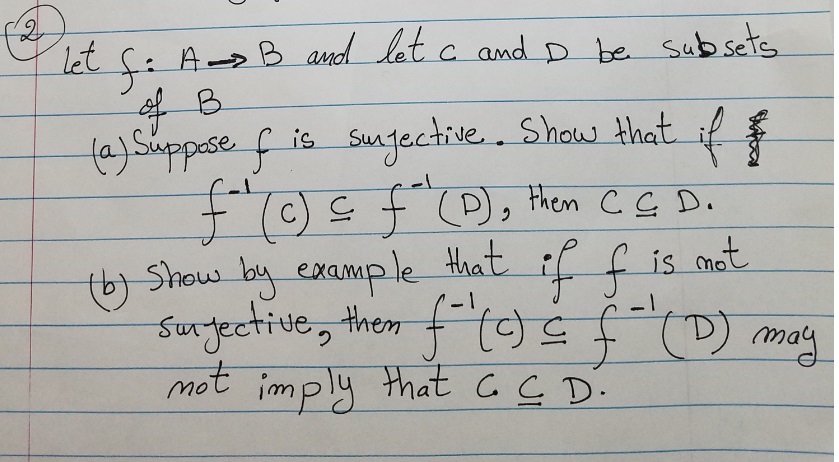 2
Let f: A → B and let C and D be subsets
of B
(a) Suppose f is surjective. Show that if
f⁻¹(C) ⊆ f⁻¹(D), then C ⊆ D.
(b) Show by example that if f is not
surjective, then f⁻¹(C) ⊆ f⁻¹(D) may
not imply that C ⊆ D.